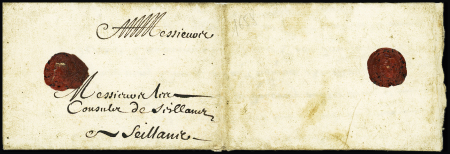 Messieurs
Messieurs les
Consuls de Seillans
Seillans